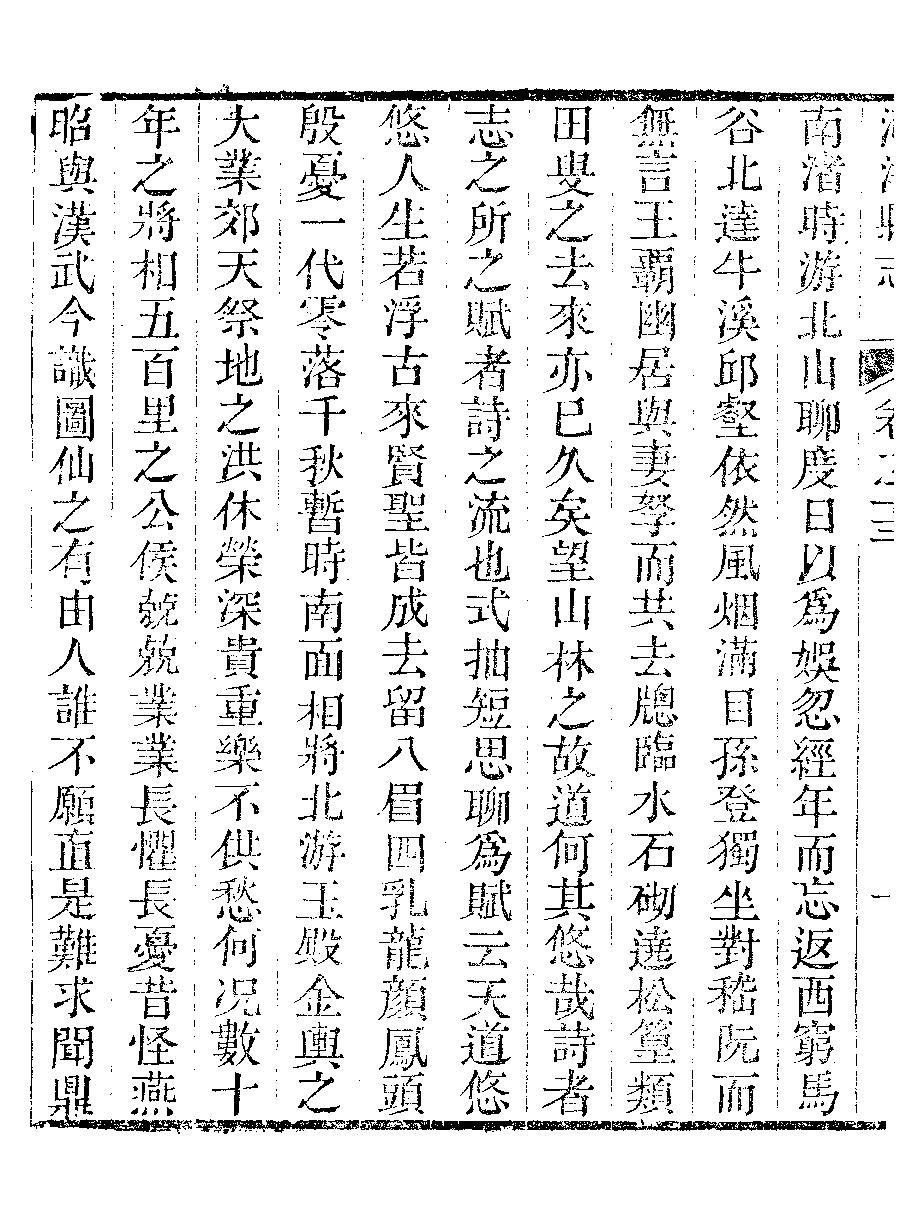 卷之十三
南渚時游北山聊度日以爲娛忽經年而忘返西窮馬
谷北達牛溪邱壑依然風烟滿目孫登獨坐對嵇阮而
無言王霸幽居與妻孥而共去牕臨水石砌遶松篁類
田叟之去來亦已久矣望山林之故道何其悠哉詩者
志之所之賦者詩之流也式抽短思聊爲賦云天道悠
悠人生若浮古來賢聖皆成去留八眉四乳龍顏鳳頭
殷憂一代零落千秋暫時南面相將北游玉殿金輿之
大業郊天祭地之洪休榮深貴重樂不供愁何况數十
年之將相五百里之公侯兢兢業業長懼長憂昔怪燕
昭與漢武今識圖仙之有由人誰不願直是難求聞鼎